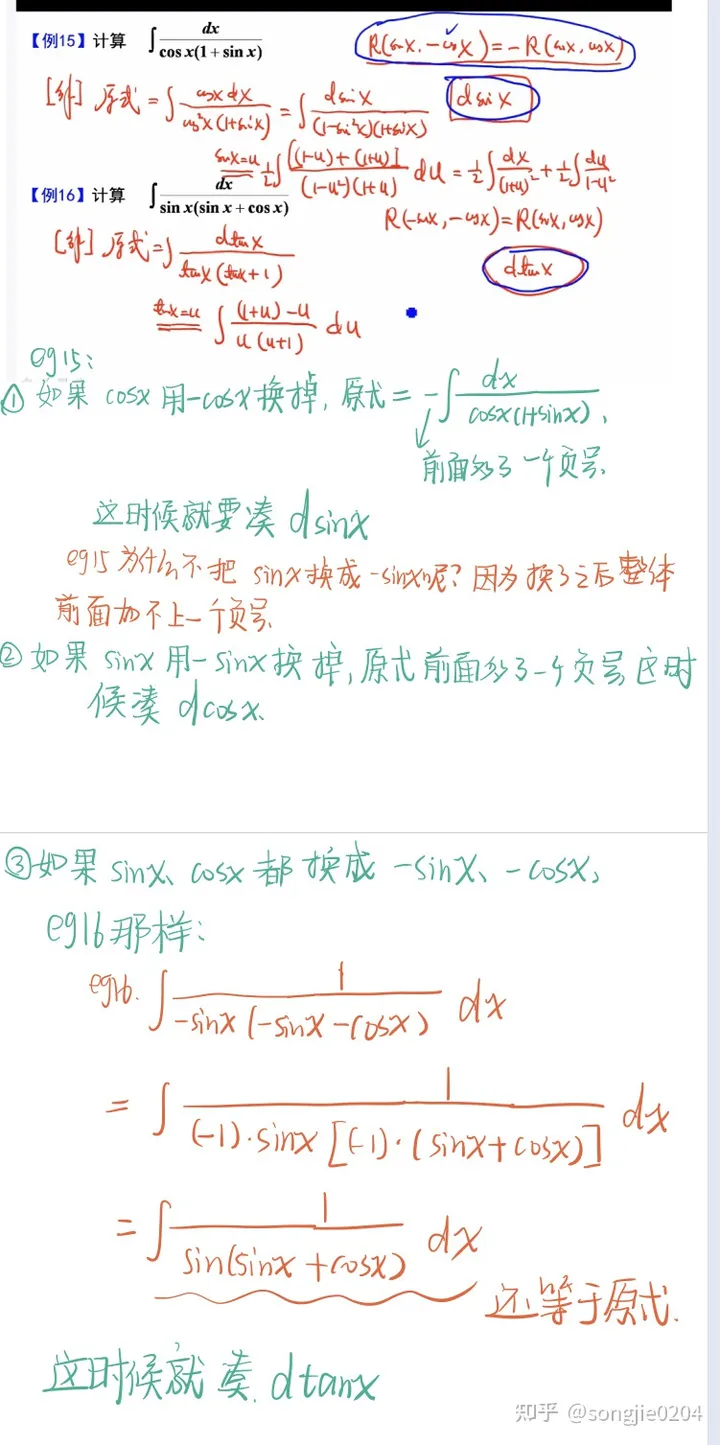 【例15】计算 ∫ dx / cos x(1 + sin x)
R(sinx, -cosx) = -R(sinx, cosx)
[解] 原式 = ∫ cosx dx / cos²x (1+sinx) = ∫ dsinx / (1-sin²x)(1+sinx)
dsinx
sinx=u ½∫ [(1-u)+(1+u)] / (1-u²)(1+u) du = ½∫ dx / (1+u)² + ½∫ du / 1-u²
【例16】计算 ∫ dx / sin x(sin x + cos x)
R(-sinx, -cosx) = R(sinx, cosx)
[解] 原式 = ∫ dtanx / tanx(tanx+1)
dtanx
tanx=u ∫ (1+u)-u / u(u+1) du
eg15:
① 如果 cosx 用-cosx换掉, 原式 = -∫ dx / cosx(1+sinx),
前面多了一个负号.
这时候就要凑 dsinx
eg15 为什么不把 sinx换成-sinx呢? 因为换了之后整体
前面加不上一个负号.
② 如果 sinx 用-sinx换掉,原式前面多了一个负号这时
候凑 dcosx.
③如果 sinx、cosx 都换成 -sinx、-cosx,
eg16那样:
eg16. ∫ 1 / -sinx(-sinx-cosx) dx
= ∫ 1 / (-1)·sinx[(-1)·(sinx+cosx)] dx
= ∫ 1 / sin(sinx+cosx) dx
还等于原式.
这时候就凑 dtanx
知乎 @songjie0204